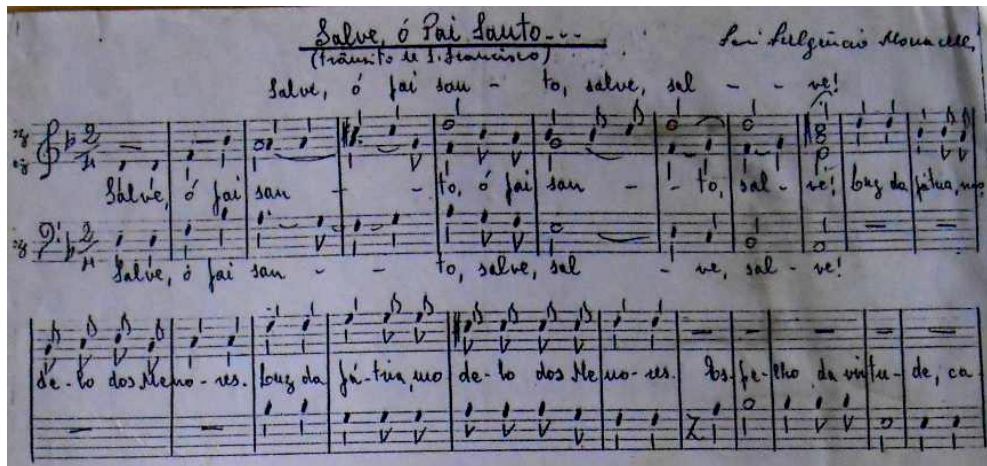 Salve, ó Pai Santo...
(Trânsito de S. Francisco)
Salve, ó pai san - to, salve, sal - - ve!
2/4
Salve, ó pai san - - to, ó pai san - - to, sal - ve! Luz da pátria, mo
2/4
Salve, ó pai san - - to, salve, sal - ve, sal - ve!
de - lo dos Meno - res. Luz da pá - tria, mo de - lo dos Me no - res. Es - pe - lho da virtu - de, ca -